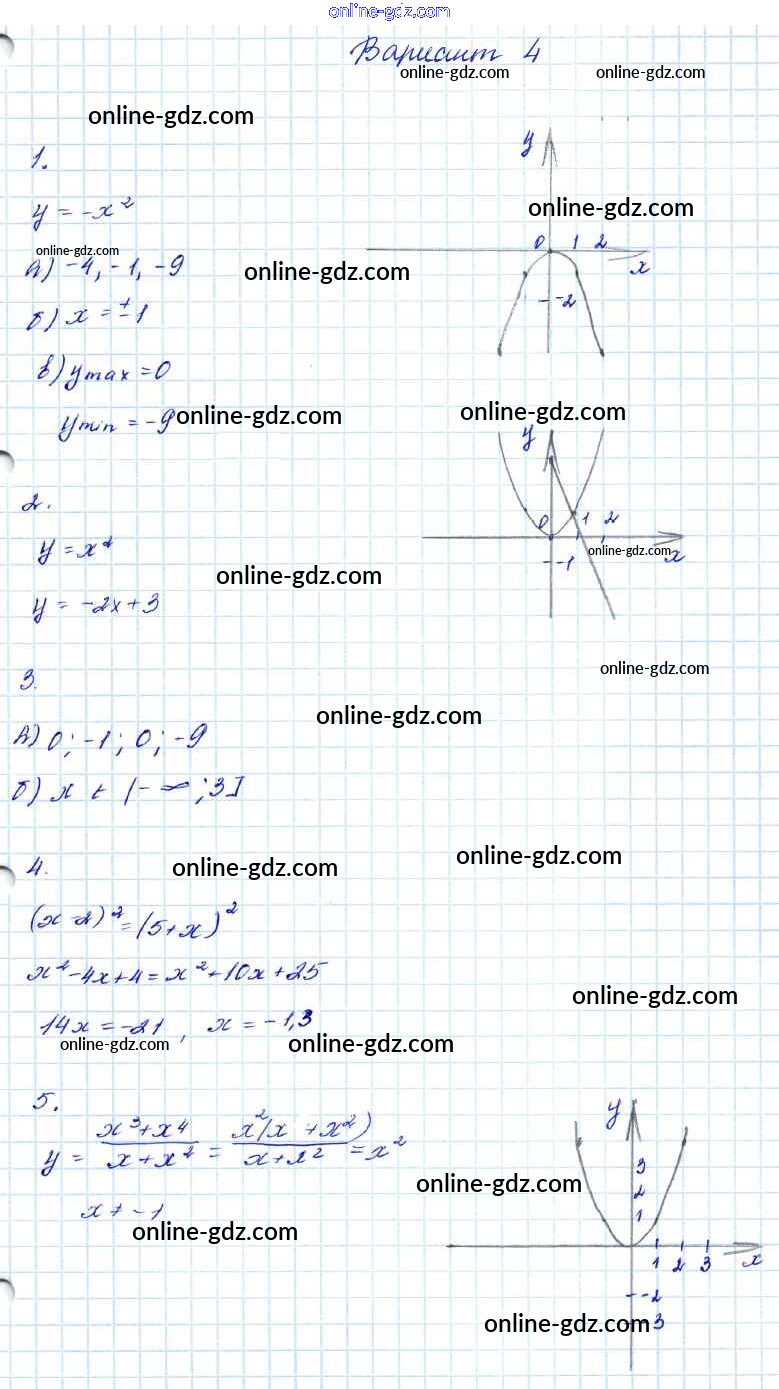 online-gdz.com
Вариант 4
online-gdz.com online-gdz.com
online-gdz.com
1.
y
y = -x²
online-gdz.com
online-gdz.com
0 1 2
x
а) -4, -1, -9
online-gdz.com
-2
б) x = ±1
в) y max = 0
y min = -9
online-gdz.com
online-gdz.com
y
2.
0 1 2
y = x²
online-gdz.com
x
-1
online-gdz.com
y = -2x+3
3.
online-gdz.com
online-gdz.com
а) 0; -1; 0; -9
б) x ∈ (-∞; 3]
4.
online-gdz.com
online-gdz.com
(x-2)² = (5+x)²
x²-4x+4 = x²+10x+25
online-gdz.com
14x = -21, x = -1,3
online-gdz.com
online-gdz.com
5.
y
y = x³+x⁴ / x+x² = x²(x+x²) / x+x² = x²
3
2
1
online-gdz.com
x ≠ -1
online-gdz.com
1 2 3 x
-2
-3
online-gdz.com